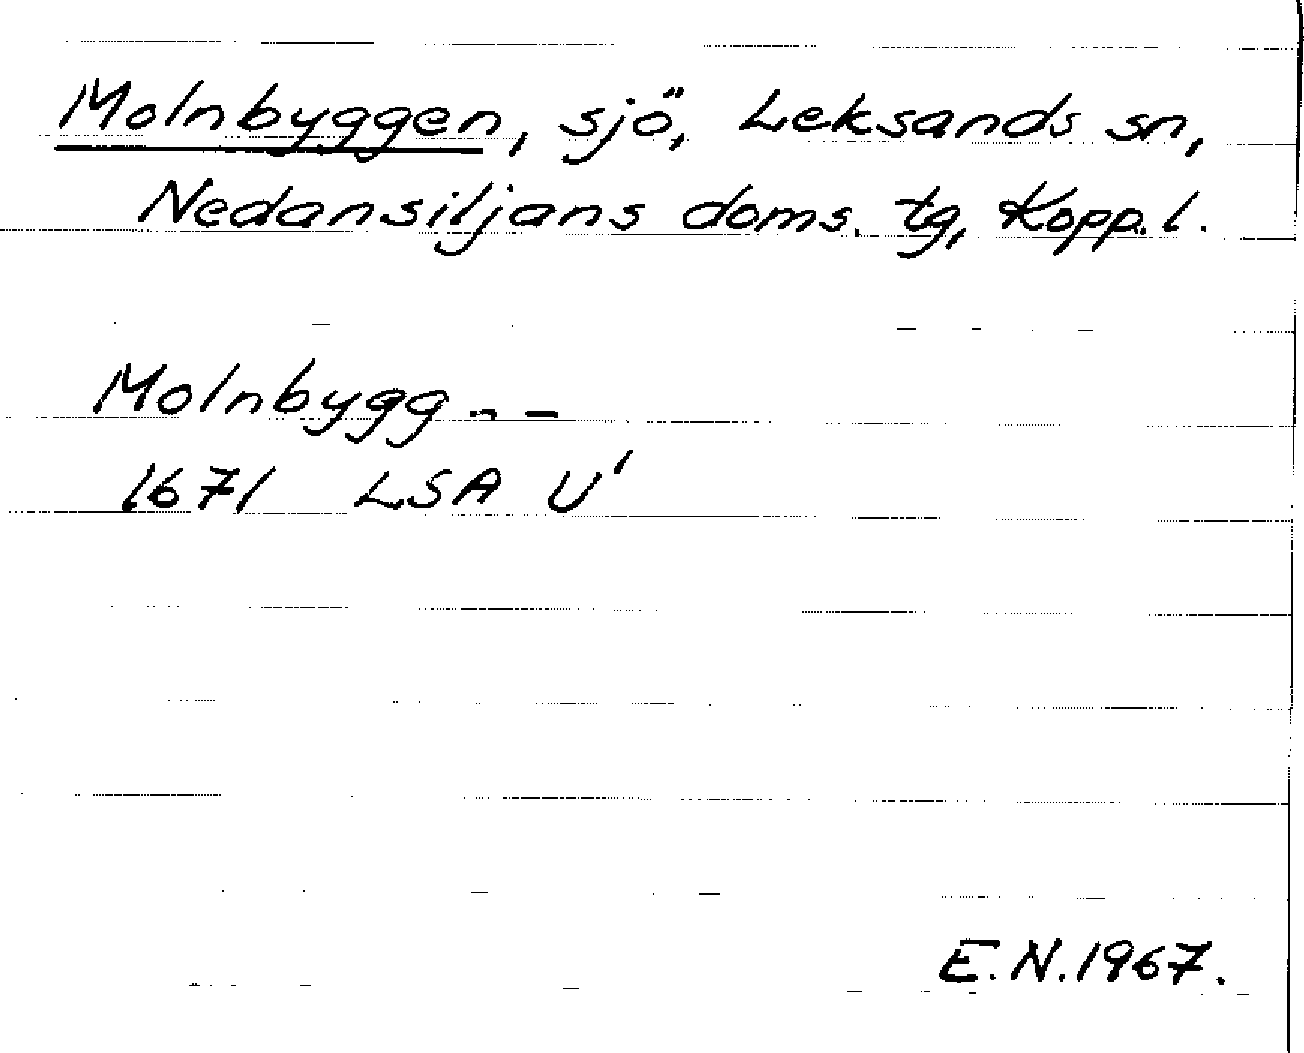 Molnbyggen, sjö, Leksands sn,
Nedansiljans doms. tg, Kopp. l.
Molnbygg - -
1671 LSA U'
E.N. 1967.